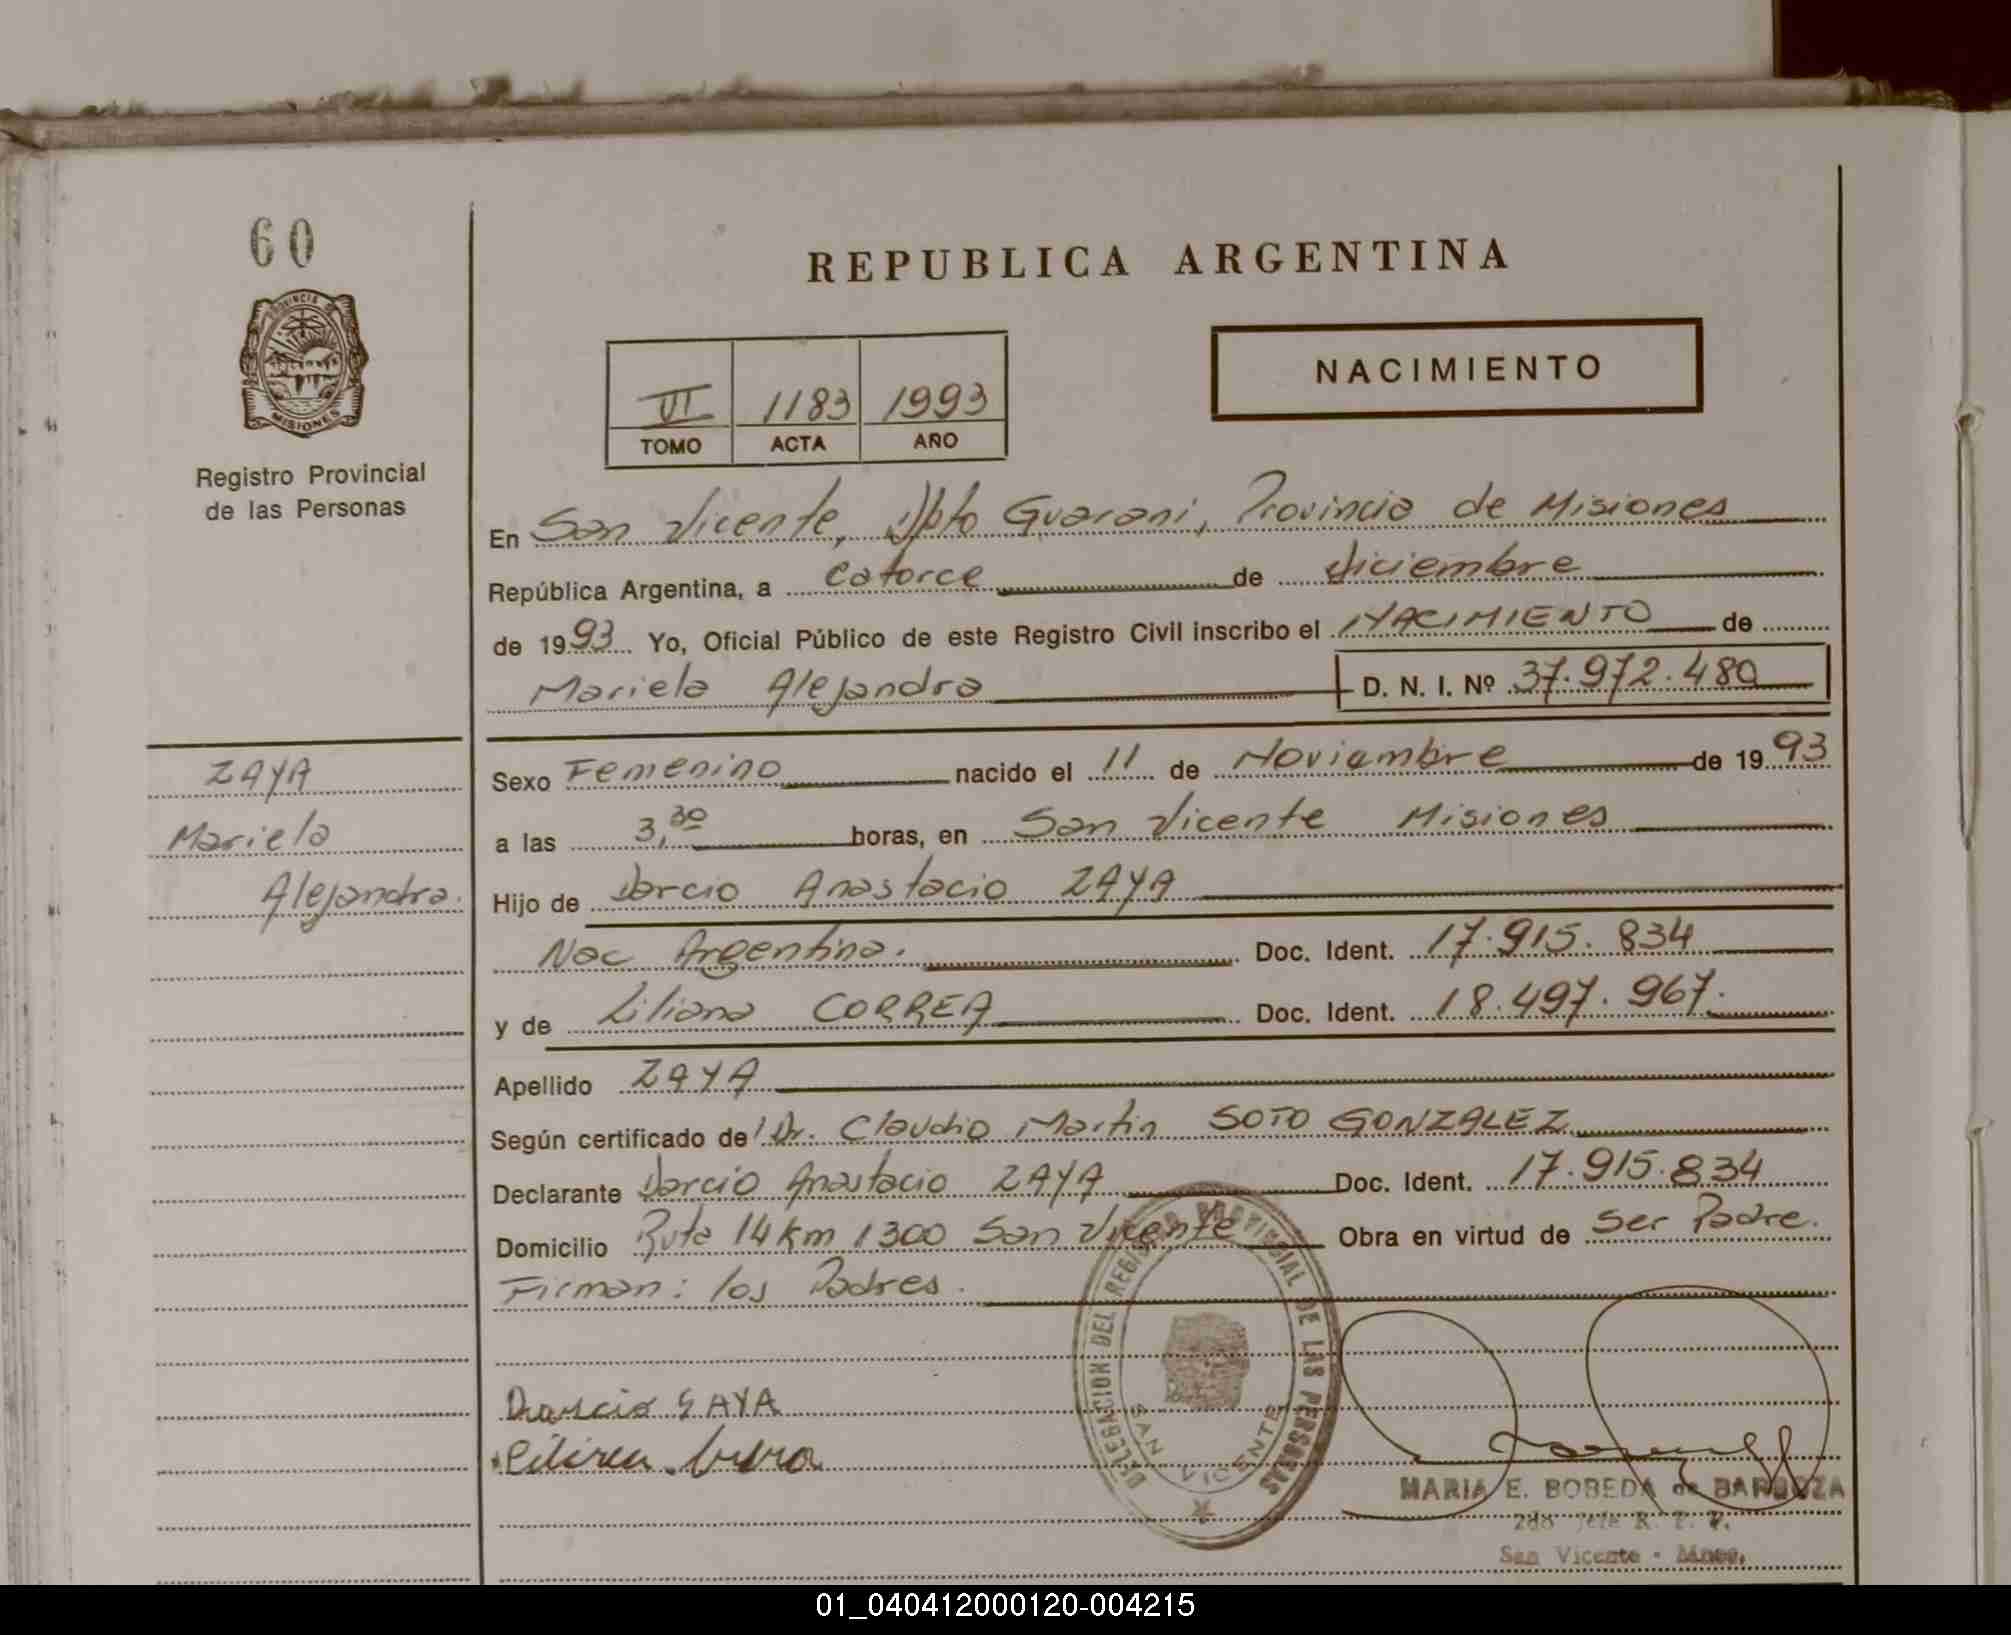 60
REPUBLICA ARGENTINA
PROVINCIA DE
MISIONES
NACIMIENTO
VI 1183 1993
TOMO ACTA AÑO
Registro Provincial
de las Personas
En San Vicente, Dpto Guarani, Provincia de Misiones
República Argentina, a catorce de diciembre
de 1993 Yo, Oficial Público de este Registro Civil inscribo el NACIMIENTO de
Mariela Alejandra D. N. I. Nº 37.972.480
ZAYA
Mariela
Alejandra.
Sexo Femenino nacido el 11 de Noviembre de 1993
a las 3,30 horas, en San Vicente Misiones
Hijo de Darcio Anastacio ZAYA
Nac Argentina. Doc. Ident. 17.915.834
y de Liliana CORREA Doc. Ident. 18.497.967.
Apellido ZAYA
Según certificado del Dr. Claudio Martin SOTO GONZALEZ
Declarante Darcio Anastacio ZAYA Doc. Ident. 17.915.834
Domicilio Ruta 14 km 1300 San Vicente Obra en virtud de ser Padre.
Firman: los Padres.
DELEGACION DEL REGISTRO PROVINCIAL DE LAS PERSONAS
SAN VICENTE
Darcio ZAYA
MARIA E. BOBEDA de BARBOZA
2do Jefe R. P. P.
San Vicente - Mnes.
01_040412000120-004215